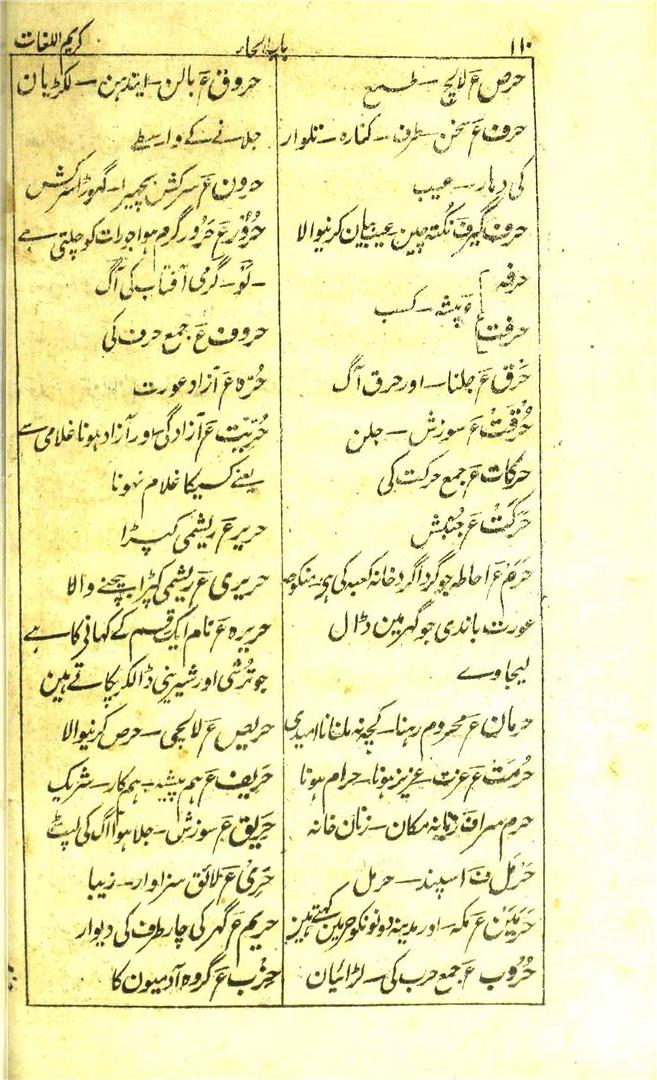 ۱۱۰ باب الحاء کریم اللغات
حرص ع لالچ – طمع
حرف ع سخن – طرف – کنارہ – تلوار
کی دھار – عیب
حرف گیر ف نکتہ چین عیب بیان کرنیوالا
حرفہ
حرفت ع پیشہ – کسب
حَرَق ع جلنا – اور حرق آگ
حُرقَتْ ع سوزش – جلن
حرکات ع جمع حرکت کی
حَرَکَتْ ع جُنبش
حَرَم ع احاطہ جو گردا گرد خانہ کعبہ کی ہی منکوحہ
عورت باندی جو گھر مین ڈال
لیجاوے
حرمان ع محروم رہنا – کچھ نہ ملنا ناامیدی
حُرمَت ع عزت – عزیز ہونا – حرام ہونا
حرم سرا ف زنانہ مکان – زنان خانہ
حَرْمَل ف اسپند – حرمل
حَرَمَین ع مکہ – اور مدینہ دونونکو حرمین کہتے ہیں
حُرُوب ع جمع حرب کی – لڑائیان
حروق ع بالن – ایندہن – لکڑیان
جلانے کے واسطے
حرون ع سرکش بچھیرا – گھوڑا سرکش
حُرُوْر ع حَرُور گرم ہوا جو رات کو چلتی ہے
– لَوْ – گرمی آفتاب کی آگ
حروف ع جمع حرف کی
حُرّہ ع آزاد عورت
حُرّیّت ع آزادگی – اور آزاد ہونا غلامی سے
یعنے کسیکا غلام نہونا
حریر ع ریشمی کپڑا
حریری ع ریشمی کپڑا بیچنے والا
حریرہ ع نام ایک قسم کے کھانی کا ہے
جو ترشی اور شیرینی ڈالکر پکاتے ہین
حریص ع لالچی – حرص کرنیوالا
حَرِیف ع ہم پیشہ – ہمکار – شریک
حَرِیق ع سوزش – جلا ہوا آگ کی لپٹ
حَرِیْ ع لائق سزاوار – زیبا
حریم ع گھر کی چار طرف کی دیوار
حِزْب ع گروہ آدمیون کا